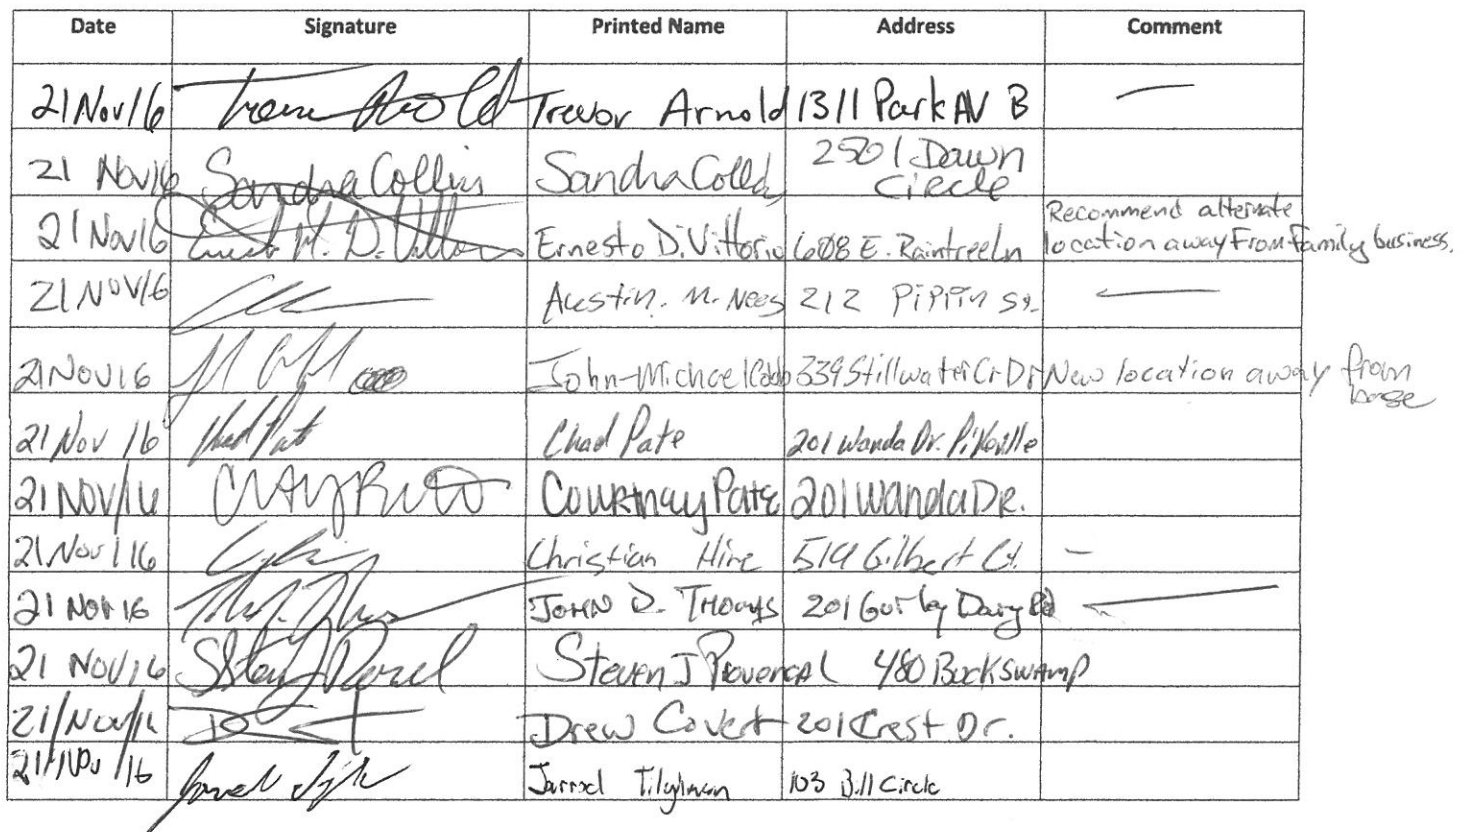 Date Signature Printed Name Address Comment
21 Nov/16 Trevor Arnold 1311 Park AV B —
21 Nov16 Sandra Collins Sandra 2501 Dawn
Circle
21 Nov16 Ernesto Di Vittorio 608 E. Raintree Ln Recommend alternate
location away From family business.
21 NOV/16 Austin. M. Nees 212 Pippin St. —
21NOV16 John-Michael Cobb 339 Stillwater Cr Dr New location away from
base
21 Nov 16 Chad Pate Chad Pate 201 Wanda Dr. Pikeville
21 NOV/16 Courtnay Pate 201 Wanda DR.
21 Nov/16 Christian 519 Gilbert Ct. —
21 Nov 16 JOHN D. THOMAS 201 Gurley Dary Rd —
21 NOV/16 Steven J Provencal 480 Buckswamp
21/Nov/16 Drew Covert 201 Crest Dr.
21/Nov/16 Jarrod Tilghman 103 Bill Circle